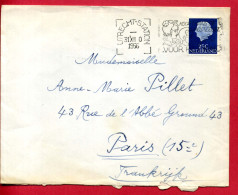 UTRECHT-STATION
1956
NEDERLAND
VOOR
Mademoiselle
Anne-Marie Pillet
43 Rue de l'Abbé Groult 43
Paris (15e)
Frankrijk